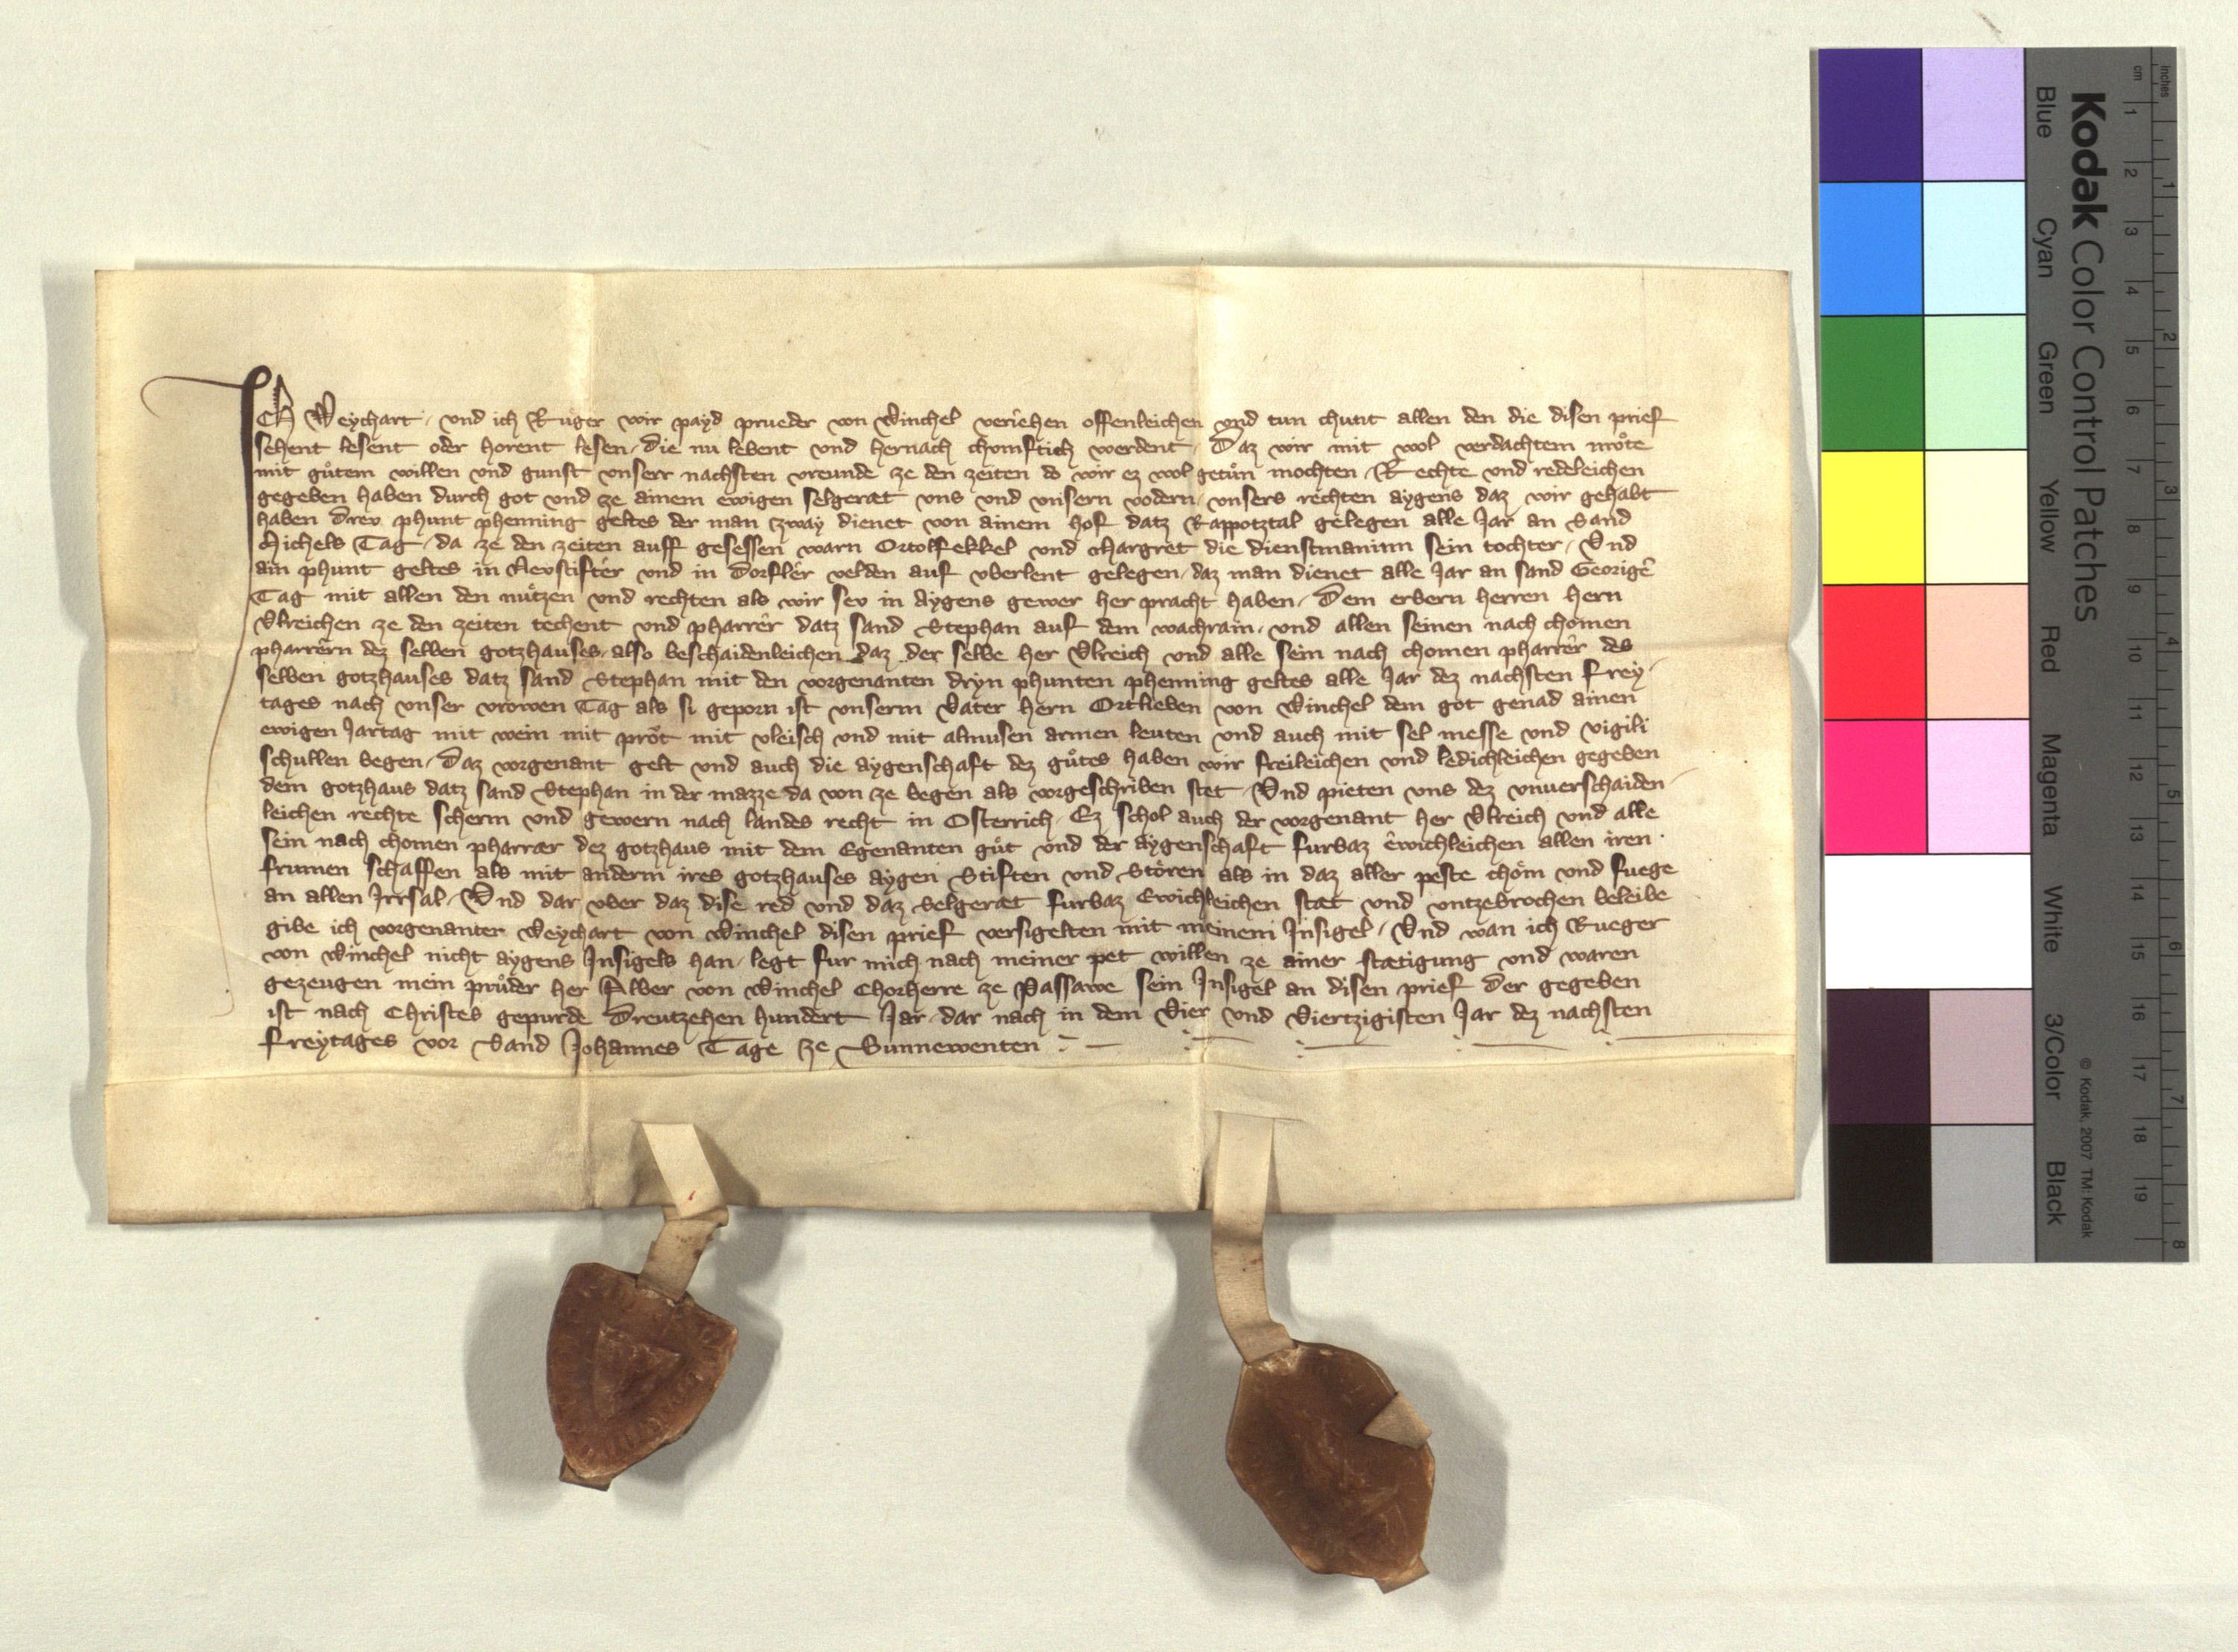 ICh Weychart / und ich Rueger wir payd prueder von Winchel veriehen offenleichen und tun chunt allen den die disen prief
sehent lesent oder horent lesen / die nu lebent und hernach chomftich werdent / Daz wir mit wol verdachtem můte
mit gůtem willen und gunst unserr nachsten vreunde ze den zeiten do wir ez wol getůn mochten / Rechte und redeleichen
gegeben haben durch got und ze ainem ewigen selgeræt uns und unsern vodern / unsers rechten aygens daz wir gehabt
haben Drev phunt phenning geltes der man zway dienet von ainem hof datz Rappotztal gelegen alle Jar an Sand
Michels Tag / da ze den zeiten auff gesessen warn Ortolf ekkel und Margret die dienstmaninn sein tochter / Und
ain phunt geltes in Nevstifter und in Dorfler velden auf uberlent gelegen / daz man dienet alle Jar an sand Georigen
Tag mit allen den nützen und rechten als wir sev in aygens gewer her pracht haben / Dem erbern herren hern
Ulreichen ze den zeiten techent und pharrer datz sand Stephan auf dem wachrain / und allen seinen nach chomen
pharrern dez selben gotzhauses / also beschaidenleichen daz der selbe her Ulreich und alle sein nach chomen pharrer des
selben gotzhauses datz sand Stephan mit den vorgenanten dryn phunten phenning geltes alle Jar dez nachsten Frey-
tages nach unser vrowen Tag als si geporn ist unserm Vater hern Ortlieben von Winchel dem got genad ainen
ewigen Jartag mit wein mit prot mit vleisch und mit almusen armen leuten und auch mit sel messe und vigili
schullen begen / Daz vorgenant gelt und auch die aygenschaft dez gůtes haben wir freileichen und ledichleichen gegeben
dem gotzhaus datz sand Stephan in der mazze da von ze begen als vorgeschriben stet / Und pieten uns dez unverschaiden-
leichen rechte scherm und gewern nach landes recht in Osterrich / Ez schol auch der vorgenant her Ulreich und alle
sein nach chomen pharrær dez gotzhaus mit dem Egenanten gůt und der aygenschaft furbaz ewichleichen allen iren
frumen schaffen als mit anderm ires gotzhauses aygen Stiften und Stören als in daz aller peste chom und fuege
an allen Irrsal / Und dar uber daz dise red und daz Selgeræt furbaz Ewichleichen stæt und untzebrochen beleibe
gibe ich vorgenanter Weychart von Winchel disen prief versigelten mit meinem Insigel / Und wan ich Rueger
von Winchel nicht aygens Insigels han / legt fur mich nach meiner pet willen ze ainer stætigung und waren
gezeugen mein průder her Alber von Winchel Chorherre ze Passawe sein Insigel an disen prief Der gegeben
ist nach Christes gepurde Dreutzehen hundert Jar dar nach in dem Vier und Viertzigisten Jar dez nachsten
Freytages vor Sand Johannes Tage ze Sunnewenten
Kodak Color Control Patches
Blue Cyan Green Yellow Red Magenta White 3/Color Black
cm 1 2 3 4 5 6 7 8 9 10 11 12 13 14 15 16 17 18 19
inches 1 2 3 4 5 6 7 8
© Kodak, 2007 TM: Kodak